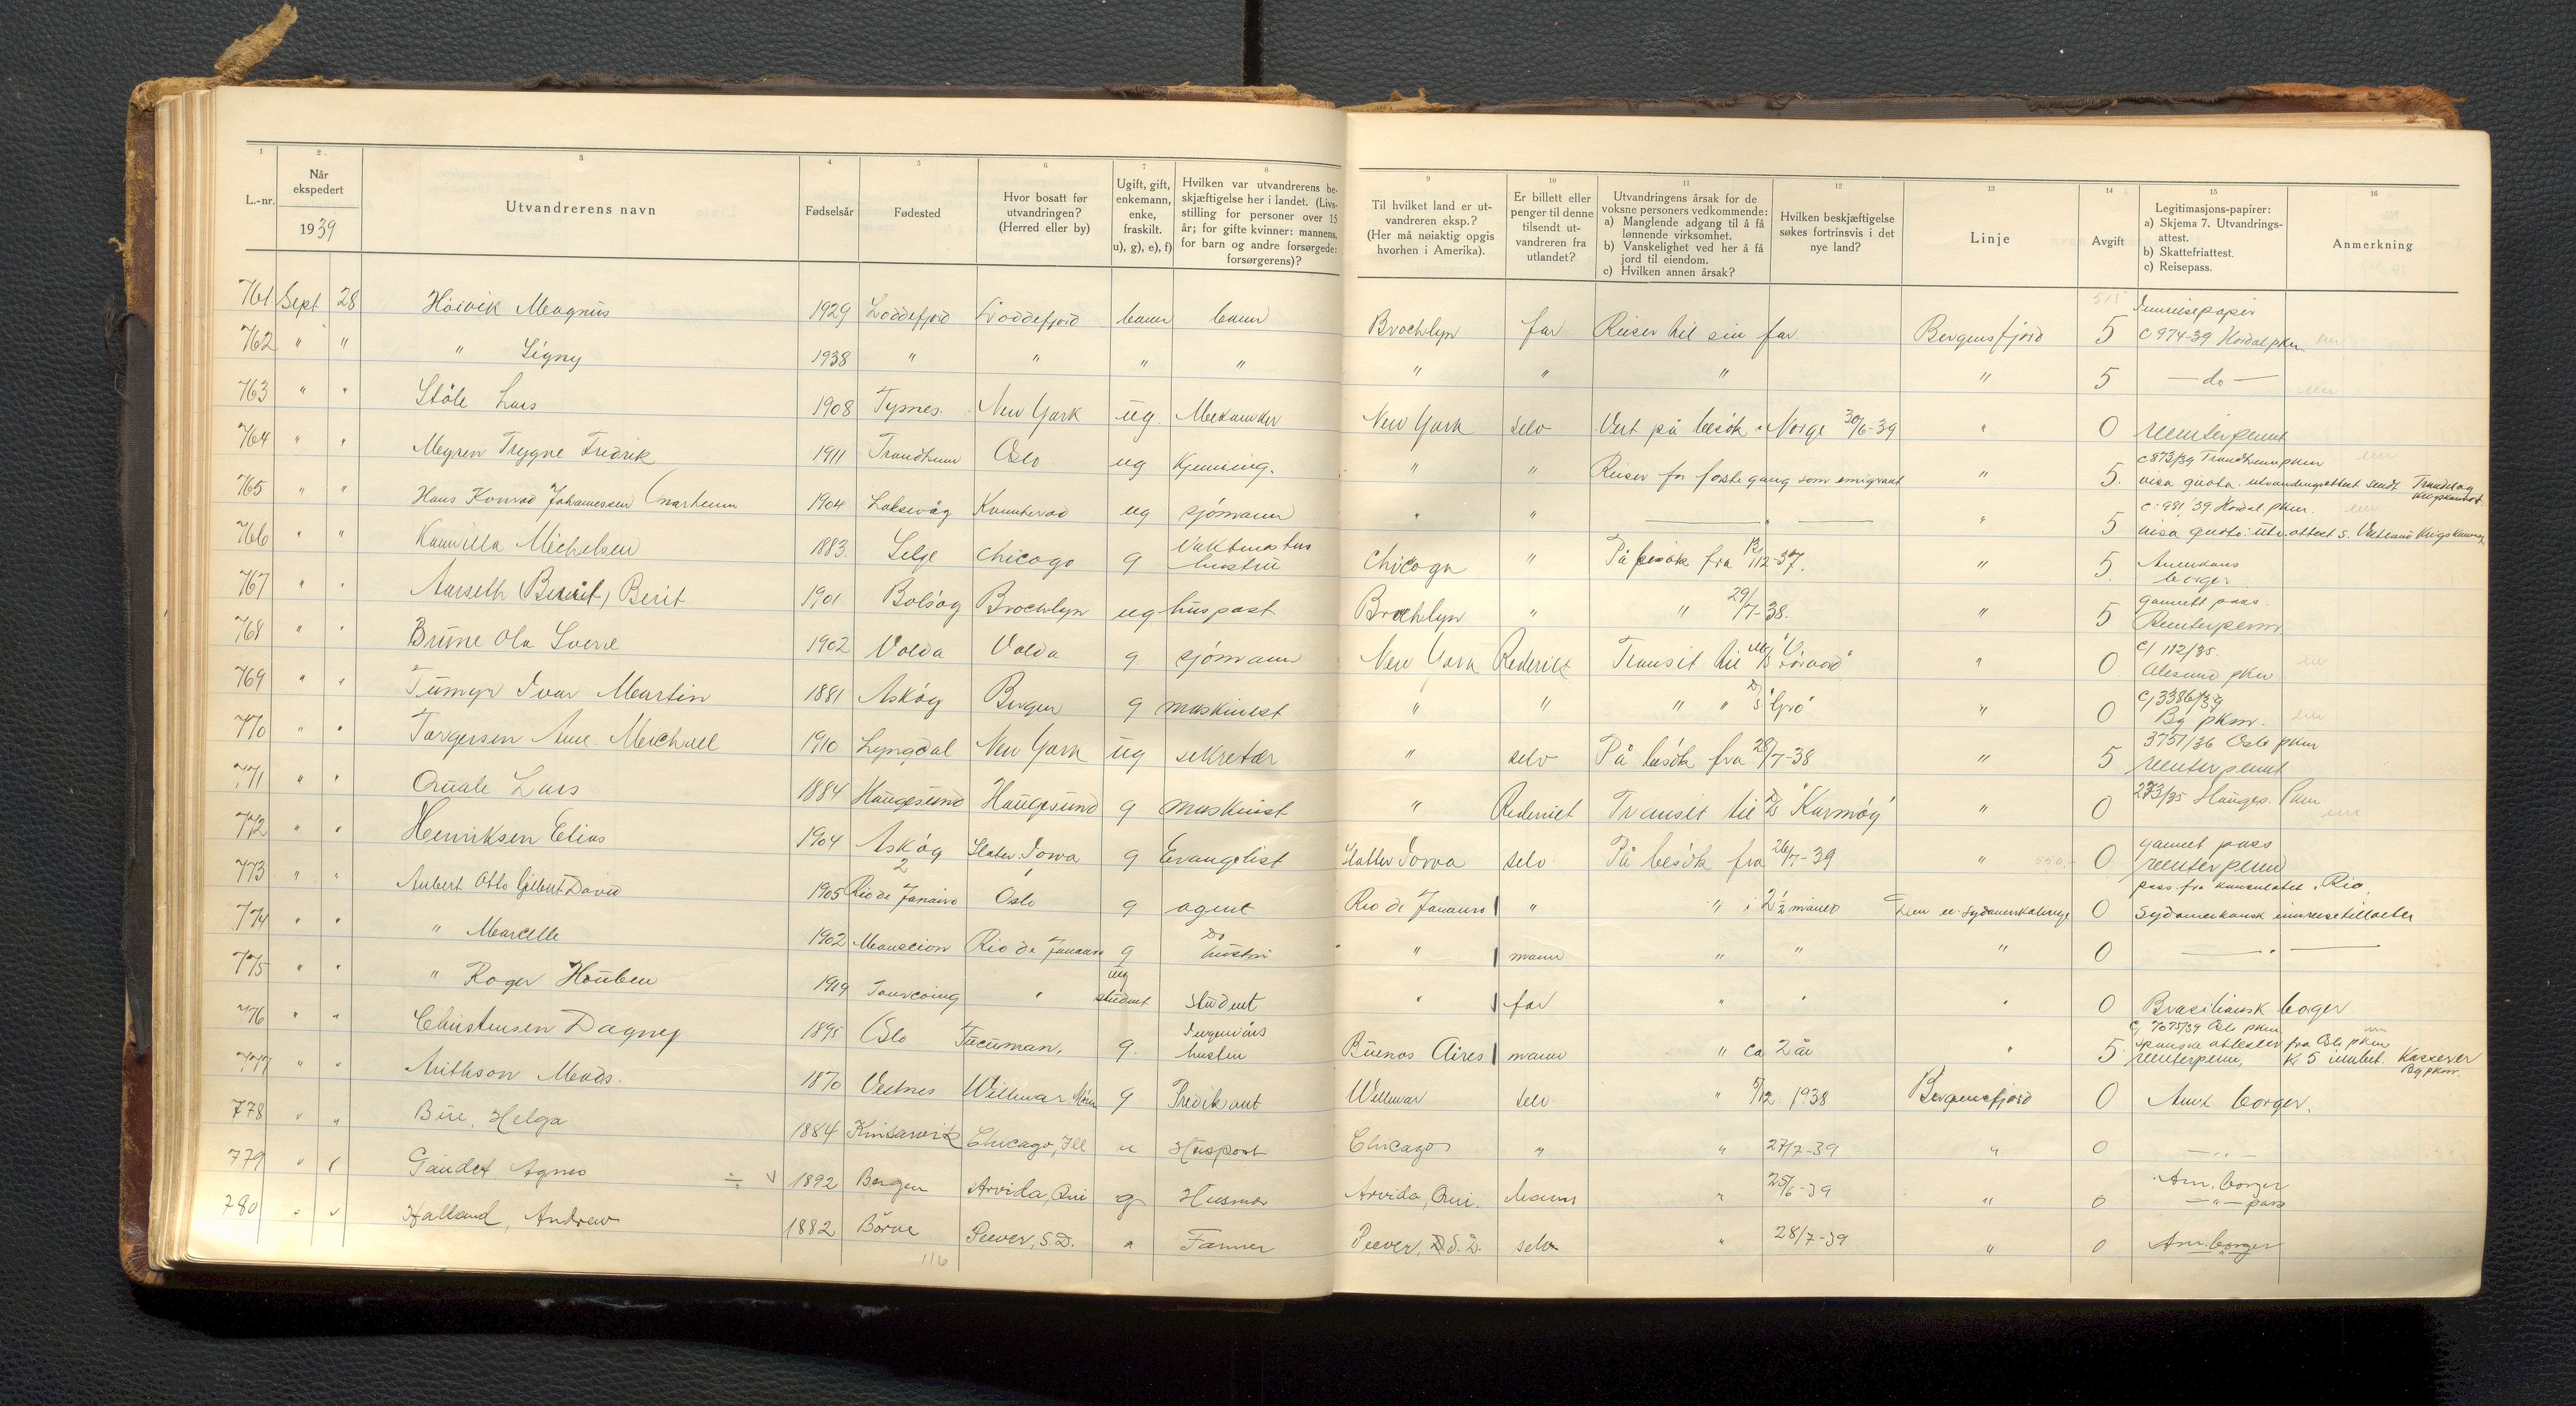 1 2. 3 4 5 6 7 8 9 10 11 12 13 14 15 16
L.-nr. Når ekspedert 1939 Utvandrerens navn Fødselsår Fødested Hvor bosatt før utvandringen? (Herred eller by) Ugift, gift, enkemann, enke, fraskilt. u), g), e), f) Hvilken var utvandrerens beskjæftigelse her i landet. (Livsstilling for personer over 15 år; for gifte kvinner: mannens, for barn og andre forsørgede: forsørgerens)? Til hvilket land er utvandreren eksp.? (Her må nøiaktig opgis hvorhen i Amerika). Er billett eller penger til denne tilsendt utvandreren fra utlandet? Utvandringens årsak for de voksne personers vedkommende: a) Manglende adgang til å få lønnende virksomhet. b) Vanskelighet ved her å få jord til eiendom. c) Hvilken annen årsak? Hvilken beskjæftigelse søkes fortrinsvis i det nye land? Linje Avgift Legitimasjons-papirer: a) Skjema 7. Utvandringsattest. b) Skattefriattest. c) Reisepass. Anmerkning
761 Sept 28 Høivik Magnus 1929 Loddefjord Loddefjord barn barn Brochlyn far Reiser til sin far Bergensfjord 5 Innreisepapir c 974-39 Hordal pkm.
762 " " " Signy 1938 " " " " " " " " 5 — do —
763 " " Ståle Lars 1908 Tysnes. New York ug. Mekaniker New York selv Vert på besøk i Norge 30/6-39 " 0 reenterpermt
764 " " Myren Trygve Fredrik 1911 Trondheim Oslo ug " " Reiser for første gang som emigrant " 5. c 873/39 Trondheim pkm visa quota. utvandringsattest sendt Trøndelag
765 " " Hans Konrad Johannessen 1904 Laksevåg ug sjømann " " — " — " 5 c. 981/39 Hordal pkm. visa quota: utv. attest s. Vestland
766 " " Kamilla Michelsen 1883. Selje Chicago g Vaktmesters hustru Chicago " På besøk fra 12-37. " 5. Amerikans borger
767 " " Aarseth (Berit) Berit 1901 Bolsøy Brochlyn ug huspost Brochlyn " " 29/7-38. " 5 gammelt pass. Reenterperm
768 " " Brune Ola Sverre 1902 Volda Volda g sjømann New York Rederiet Transit til M/S " 0 c/ 112/35. Ålesund pkm
769 " " Tumyr Ivar Martin 1881 Askøy Bergen g maskinist " " " " D/S " 0 c/ 3386/39 Bg pkm.
770 " " Torgersen Arne Michael 1910 Lyngdal New York ug sekretær " selv På besøk fra 28/7-38 " 5 3757/36 Oslo pkm reenterpermt
771 " " Quale Lars 1884 Haugesund Haugesund g maskinist " Rederiet Transit til D/S "Karmøy" " 0 273/35 Hauges. Pkm
772 " " Henriksen Elias 1904 Askøy Slater. Iowa g Evangelist Slatter Iowa selv. På besøk fra 26/7-39 " 0 gammelt pass reenterperm
773 " " Aubert Otto Gilbert David 1905 Rio de Janairo Oslo g agent Rio de Janairo " " i 2½ måned Den n. sydamerikalinje 0 pass fra konsulatet i Rio. Sydamerikansk innreisetillatelse
774 " " " Marcelle 1902 Rio de Janairo g Do hustru " mann " " " 0 — " —
775 " " " Roger Houben 1919 Tourcoing " ug student student " far " " " 0 Brasiliansk borger
776 " " Christensen Dagney 1895 Oslo Tucuman. g. Ingeniørs hustru Buenos Aires mann " ca 2 år " 5 c/ 7075/39 Oslo pkm spanske attester fra Oslo pkm reenterperm, Kr 5 innbet. Kasserer Bg pkm.
777 " " Arithson Mads. 1870 Vestnes Willmar g Predikant Willmar selv. " 5/12 1938 Bergensfjord 0 Amk borger.
778 " " Bu, Helga 1884 Kinsarvik Chicago, Ill u Huspost Chicago " " 27/7-39 " 0 — " —
779 " " Gaudet, Agnes ÷ v 1892 Bergen Arvida, Qui g Husmor Arvida, Qui. Mann " 25/6-39 " 0 Am. borger — " — pass
780 " " Halland, Andrew 1882 Børve Peever, S.D. " Farmer Peever, S.D. selv " 28/7-39 " 0 Am. borger
116